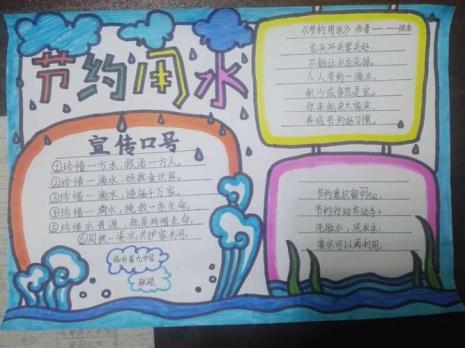 节约用水
宣传口号
①珍惜一方水,救活一方人。
②珍惜一滴水,焕然金世界。
③珍惜一滴水,造福千万家。
④珍惜一滴水,挽救一条生命。
⑤珍惜水资源,就是珍惜生命。
⑥同饮一条水,共护家乡河。
临沂第九中学
《节约用水》作者——佚名
龙头开关要关好,
不能让水白流掉。
人人节约一滴水,
积少成多就是宝。
你来我来大家来,
养成节约好习惯。
节约意识留心上,
节约行动齐动手。
洗脸水,洗衣水,
废水可以再利用。